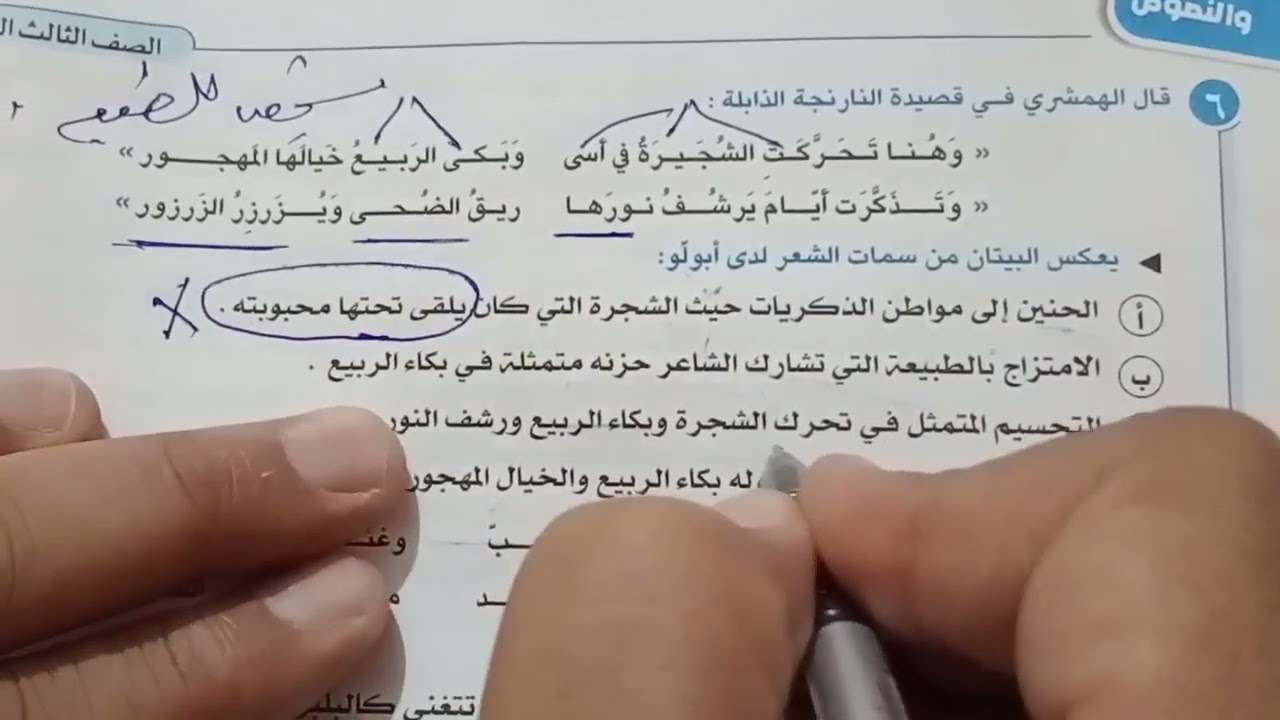 والنصوص
الصف الثالث
شخص الطبيعة
٦ قال الهمشري في قصيدة النارنجة الذابلة :
« وَهُنا تَحَرَّكَتِ الشُجَيرَةُ في أَسى وَبَكى الرَبيعُ خَيالَها المَهجور »
« وَتَذَكَّرَت أَيّامَ يَرشُفُ نورَها ريقُ الضُحى وَيُزَرزِرُ الزَرزور »
◀ يعكس البيتان من سمات الشعر لدى أبولّو:
أ الحنين إلى مواطن الذكريات حيث الشجرة التي كان يلقى تحتها محبوبته .
ب الامتزاج بالطبيعة التي تشارك الشاعر حزنه متمثلة في بكاء الربيع .
التجسيم المتمثل في تحرك الشجرة وبكاء الربيع ورشف النور
له بكاء الربيع والخيال المهجور
تتغنى كالبلبل